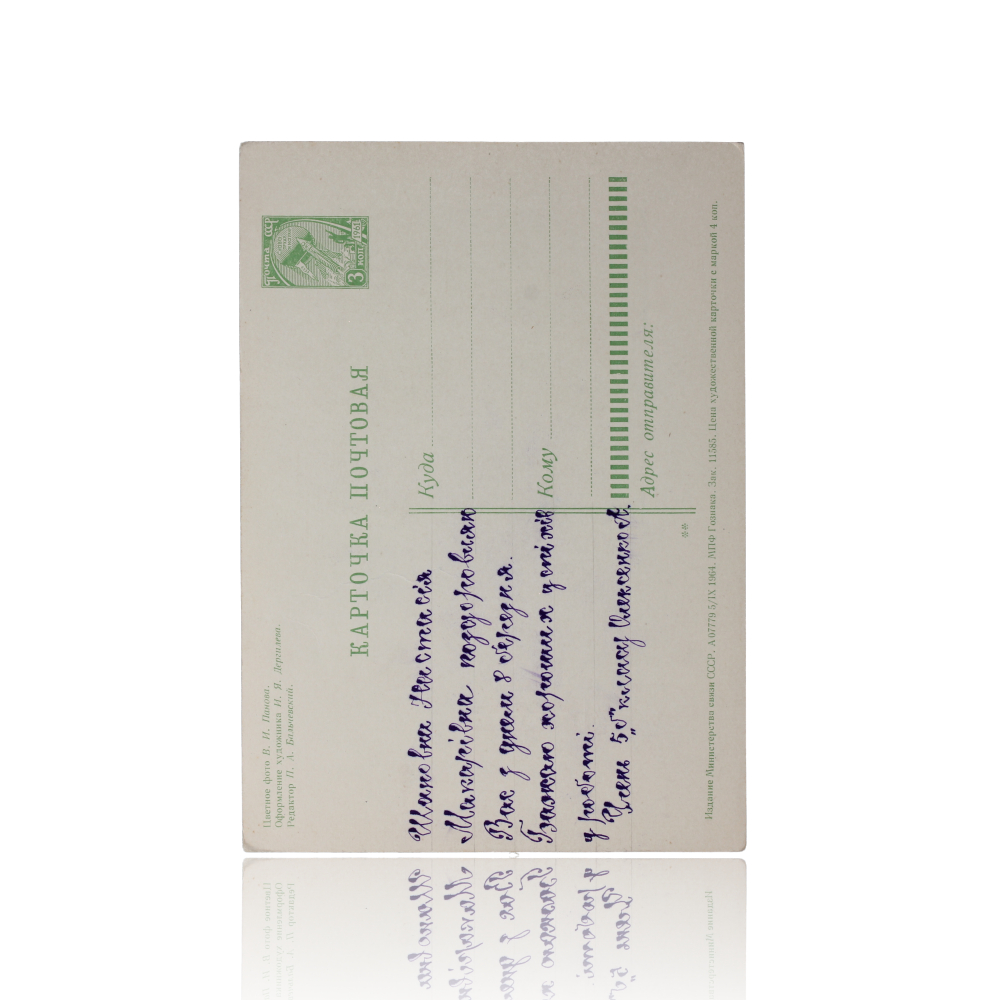 Цветное фото В. И. Панова.
Оформление художника И. Я. Дергилева.
Редактор П. А. Бальчевский.
КАРТОЧКА ПОЧТОВАЯ
Почта СССР
3 коп.
1961
Шановна Настасія
Макарівна поздоровляю
Вас з днем 8 березня.
Бажаю хороших успіхів
у роботі.
Учень 5„б" класу Олексенко А.
Куда
Кому
Адрес отправителя:
**
Издание Министерства связи СССР. А 07779 5/IX 1964. МПФ Гознака. Зак. 11585. Цена художественной карточки с маркой 4 коп.